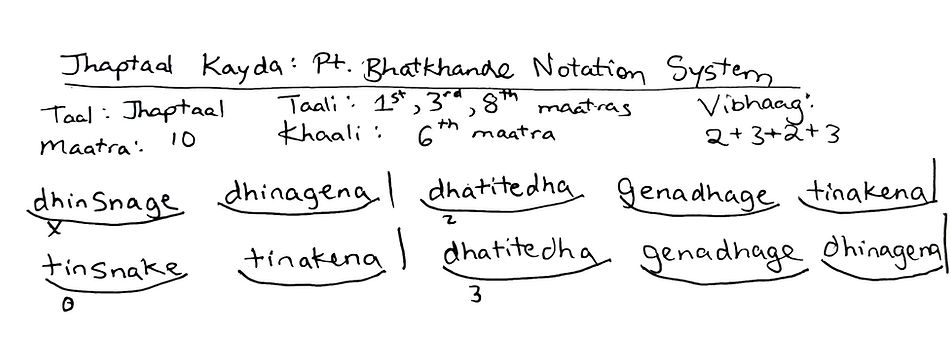 Jhaptaal Kayda: Pt. Bhatkhande Notation System
Taal: Jhaptaal Taali: 1st, 3rd, 8th maatras Vibhaag:
Maatra: 10 Khaali: 6th maatra 2+3+2+3
dhinSnage dhinagena | dhatitedha genadhage tinakena |
x 2
tinSnake tinakena | dhatitedha genadhage dhinagena |
0 3